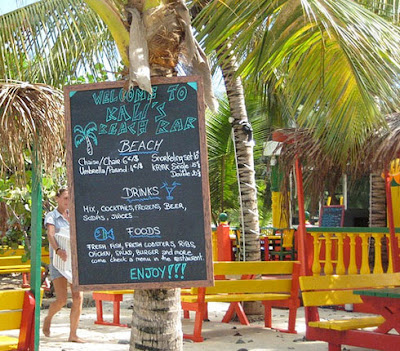 WELCOME TO
KALI'S
BEACH BAR
BEACH
Chaise/Chair 6€/$
Umbrella/Parasol
Snorkeling set
KAYAK Single
Double
DRINKS
MIX, COCKTAILS, FROZENS, BEER,
SODAS, JUICES.
FOODS
FRESH FISH, FRESH LOBSTERS, RIBS,
CHICKEN, SALAD, BURGER and more
come check a menu in the restaurant.
ENJOY!!!